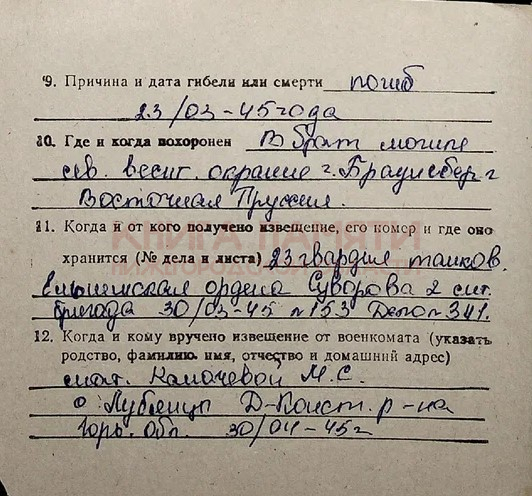 9. Причина и дата гибели или смерти погиб
23/03-45 года
10. Где и когда похоронен В брат могиле
сев. весиг. окраине г. Браунсберг
Восточная Пруссия.
11. Когда и от кого получено извещение, его номер и где оно
хранится (№ дела и листа) 23 гвардия танков.
Ельнинская ордена Суворова 2 ст.
бригада 30/03-45 №153 Дело № 341.
12. Когда и кому вручено извещение от военкомата (указать
родство, фамилию, имя, отчество и домашний адрес)
мат. М. С.
Д-Конст. р-на
Горьк. обл. 30/04-45г
КНИГА ПАМЯТИ
НИЖЕГОРОДСКОЙ ОБЛАСТИ